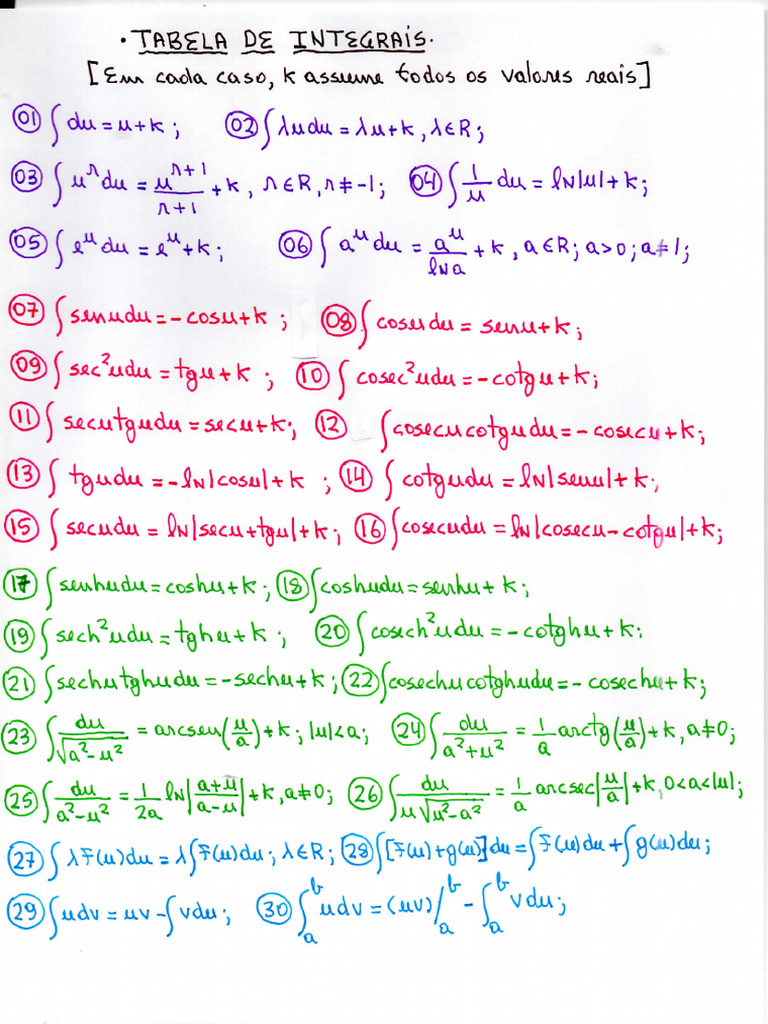 · TABELA DE INTEGRAIS.
[Em cada caso, k assume todos os valores reais]
01 ∫ du = u + k ; 02 ∫ λudu = λu + k , λ∈R ;
03 ∫ uʳdu = uʳ⁺¹/(r+1) + k , r∈R, r≠-1; 04 ∫ 1/u du = lN|u| + k ;
05 ∫ eᵘdu = eᵘ + k ; 06 ∫ aᵘdu = aᵘ/lNa + k , a∈R ; a>0 ; a≠1 ;
07 ∫ senudu = -cosu + k ; 08 ∫ cosudu = senu + k ;
09 ∫ sec²udu = tgu + k ; 10 ∫ cosec²udu = -cotgu + k ;
11 ∫ secutgudu = secu + k ; 12 ∫ cosecucotgudu = -cosecu + k ;
13 ∫ tgudu = -lN|cosu| + k ; 14 ∫ cotgudu = lN|senu| + k ;
15 ∫ secudu = lN|secu + tgu| + k ; 16 ∫ cosecudu = lN|cosecu - cotgu| + k ;
17 ∫ senhudu = coshu + k ; 18 ∫ coshudu = senhu + k ;
19 ∫ sech²udu = tghu + k ; 20 ∫ cosech²udu = -cotghu + k ;
21 ∫ sechutghudu = -sechu + k ; 22 ∫ cosechucotghudu = -cosechu + k ;
23 ∫ du/√(a²-u²) = arcsen(u/a) + k ; |u|<a ; 24 ∫ du/(a²+u²) = 1/a arctg(u/a) + k , a≠0 ;
25 ∫ du/(a²-u²) = 1/2a lN|(a+u)/(a-u)| + k , a≠0 ; 26 ∫ du/(u√(u²-a²)) = 1/a arcsec|u/a| + k , 0<a<|u| ;
27 ∫ λF(u)du = λ∫F(u)du ; λ∈R ; 28 ∫ [F(u)+g(u)]du = ∫F(u)du + ∫g(u)du ;
29 ∫ udv = uv - ∫vdu ; 30 ∫ₐᵇ udv = (uv)/ₐᵇ - ∫ₐᵇ vdu ;